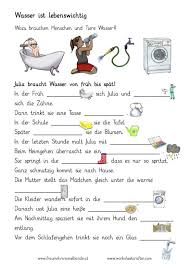 Wasser ist lebenswichtig
Wozu brauchen Menschen und Tiere Wasser?
Julia braucht Wasser von früh bis spät!
In der Früh sich Julia und
sich die Zähne.
Dann trinkt sie eine Tasse
In der Schule sie die Tafel.
Dort sie auch die
In der Pause trinkt sie Mutter
Beim Heimgehen überrascht sie ein
Sie springt in die dass es nur so spritzt.
Ganz schmutzig kommt sie nach Hause.
Die Mutter stellt das Mädchen gleich unter die warme
Die Kleider wandern sofort in die
Danach isst Julia eine heiße
Am Nachmittag spaziert sie mit ihrem Hund den
entlang.
Vor dem Schlafengehen trinkt sie noch ein Glas